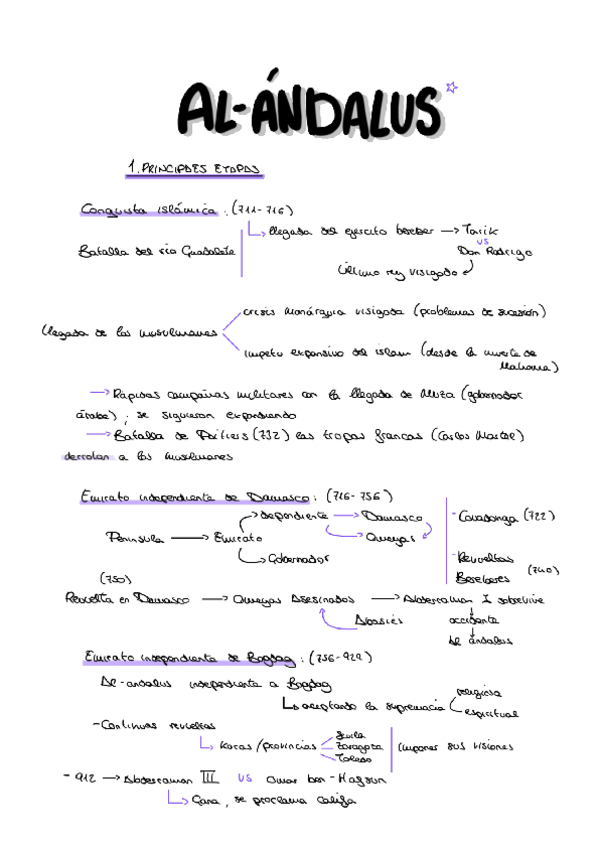 AL-ÁNDALUS
1. PRINCIPALES ETAPAS
Conquista islámica : (711-716)
llegada del ejercito bereber → Tarik
vs
Batalla del río Guadalete
Don Rodrigo
Último rey visigodo
crisis monárquia visigoda (problemas de sucesión)
llegada de los musulmanes
impetu expansivo del islam (desde la muerte de
Mahoma)
→ Rápidas campañas militares con la llegada de Muza (gobernador
árabe) ; se siguieron expandiendo
→ Batalla de Poitiers (732) las tropas francas (Carlos Martel)
derrotan a los musulmanes
Emirato independiente de Damasco : (716-756)
dependiente → Damasco
- Covadonga (722)
Península → Emirato
Omeyas
Gobernador
- Revueltas
Bereberes (740)
(750)
Revuelta en Damasco → Omeyas Asesinados → Abderraman I sobrevive
Abasies
occidente
Al andalus
Emirato independiente de Bagdag : (756-929)
Al-andalus independiente a Bagdag
aceptando la supremacia
religiosa
espiritual
- Continuas revueltas
Koras/provincias
Sevilla
Zaragoza
Toledo
imponer sus visiones
- 912 → Abderraman III vs Omar ben-Hafsun
Gana, se proclama califa